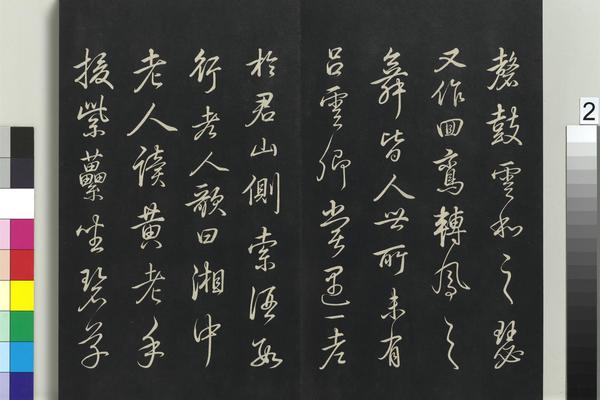 磬鼓雲和之瑟
又作回鸞轉鳳之
舞皆人世所未有
呂雲卿嘗遇一老
於君山側索酒數
行老人歌曰湘中
老人讀黃老手
援紫藟坐碧草